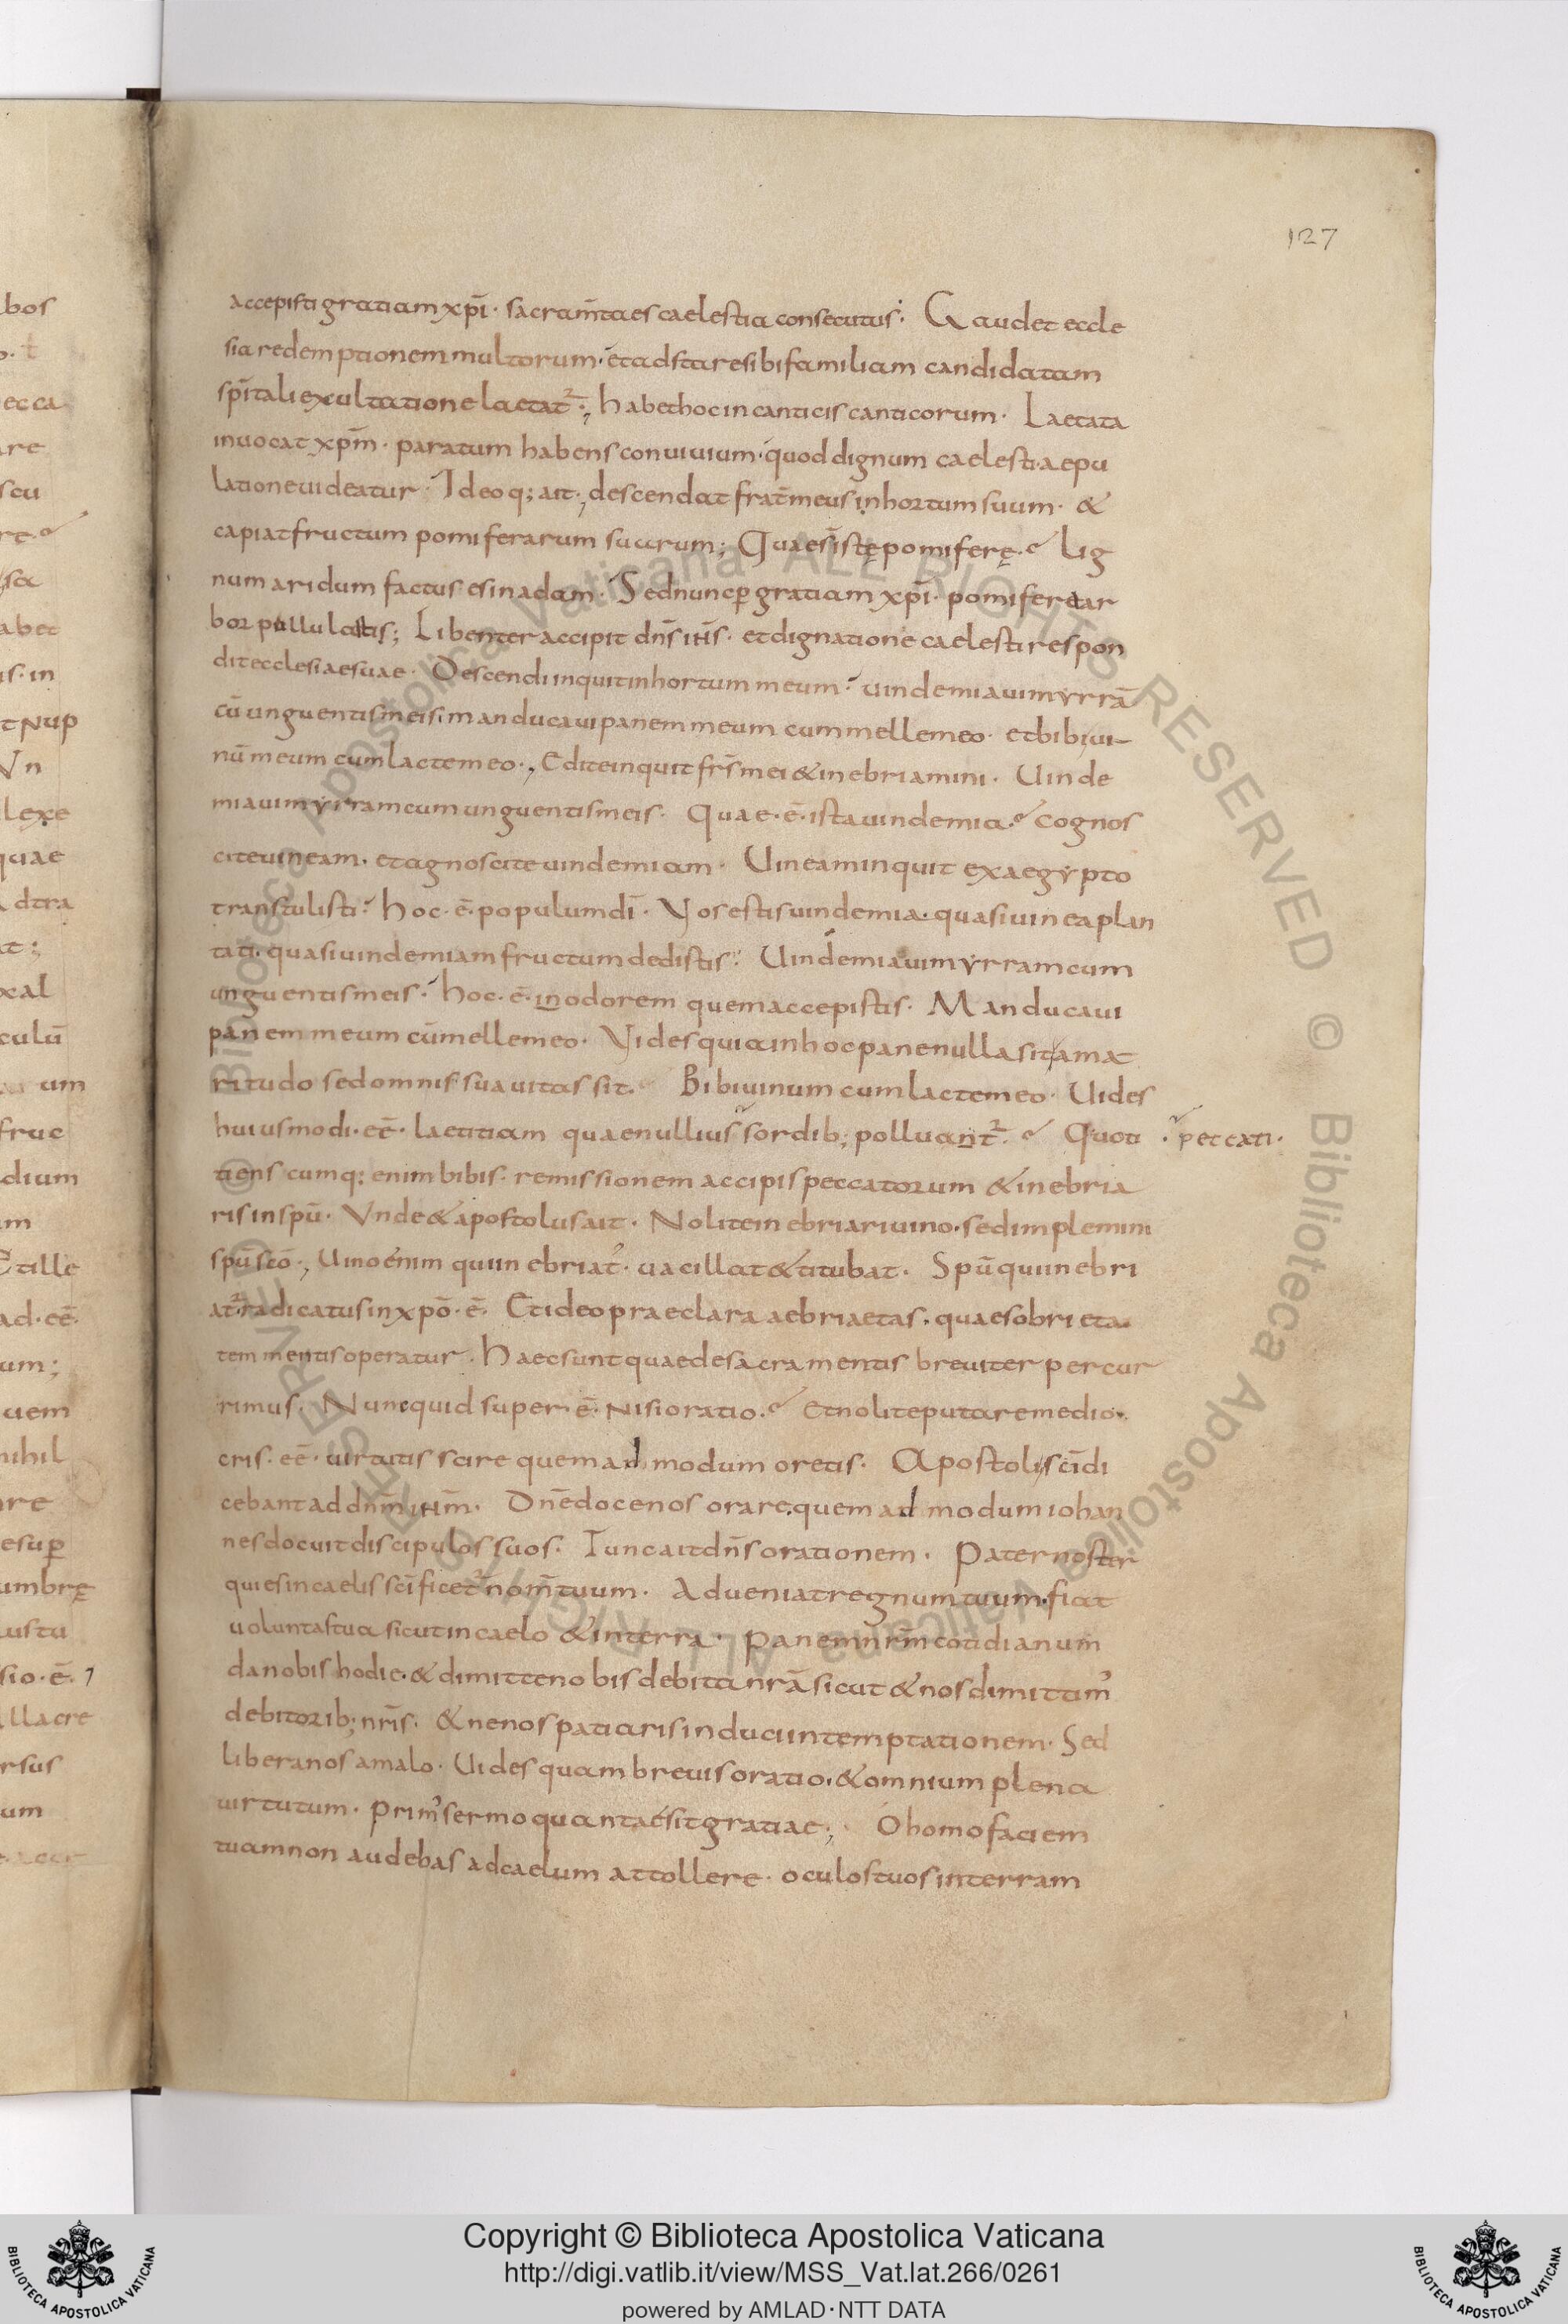 127
accepisti gratiam xp̄i · sacram̄ta es caelestia consecutus · Gaudet eccle
sia redemptionem multorum · et adstare sibi familiam candidatam
sp̄itali exultatione laetat᷑ ·, habet hoc in canticis canticorum · Laetata
invocat xp̄m · paratum habens convivium · quod dignum caelesti aepu
latione videatur · Ideoq; ait ·, descendat frat̄ meus in hortum suum · &
capiat fructum pomiferarum suarum ; Quae s̄ istę pomiferę · Lig
num aridum factus es in adam · Sed nunc p̄ gratiam xp̄i · pomiferae ar
bor pullulatis ; Libenter accipit dn̄s ih̄s · et dignatione caelesti respon
dit ecclesiae suae · Descendi inquit in hortum meum · vindemiavi myrrā
cū unguentis meis · manducavi panem meum cum melle meo · et bibi vi
nū meum cum lacte meo ·, Edite inquit fr̄s mei & inebriamini · Vinde
miavi myrram cum unguentis meis · Quae · ē · ista vindemia · cognos
cite vineam · et agnoscite vindemiam · Vineam inquit ex aegypto
transtulisti · hoc · ē · populum dī · Vos estis vindemia · quasi vinea plan
tati · quasi vindemiam fructum dedistis · Vindemiavi myrram cum
unguentis meis · hoc · ē · in odorem quem accepistis · Manducavi
panem meum cū melle meo · Vides quia in hoc pane nulla sit ama
ritudo sed omnis suavitas sit · Bibi vinum cum lacte meo · Vides
huiusmodi · eē · laetitiam quae nullius sordib; polluant᷑ · Quoti · peccati ·
tienscumq; enim bibis · remissionem accipis peccatorum & inebria
ris in spū · Unde & apostolus ait · Nolite inebriari vino · sed implemini
spū scō ·, Vino enim qui inebriat᷑ · vacillat & titubat · Spū qui inebri
at᷑ radicatus in xpō · ē · Et ideo praeclara aebriaetas · quae sobrieta
tem mentis operatur · Haec sunt quae de sacramentis breviter percur
rimus · Nunc quid super · ē · nisi oratio · et nolite putare medio
cris · eē · virtutis scire quemadmodum oretis · Apostoli scī di
cebant ad dn̄m ih̄m · Dn̄e doce nos orare quemadmodum iohan
nes docuit discipulos suos · Tunc ait dn̄s orationem · Pater noster
qui es in caelis sc̄ificet᷑ nom̄ tuum · Adveniat regnum tuum · fiat
voluntas tua sicut in caelo & in terra · panem nr̄m cotidianum
da nobis hodie · & dimitte nobis debita nr̄a sicut & nos dimittim᾽
debitorib; nr̄is · & ne nos patiaris induci in temptationem · Sed
libera nos a malo · Vides quam brevis oratio · & omnium plena
virtutum · prim᾽ sermo quantae sit gratiae ; O homo faciem
tuam non audebas ad caelum attollere · oculos tuos in terram
Copyright © Biblioteca Apostolica Vaticana
http://digi.vatlib.it/view/MSS_Vat.lat.266/0261
powered by AMLAD·NTT DATA
BIBLIOTECA APOSTOLICA VATICANA
BIBLIOTECA APOSTOLICA VATICANA